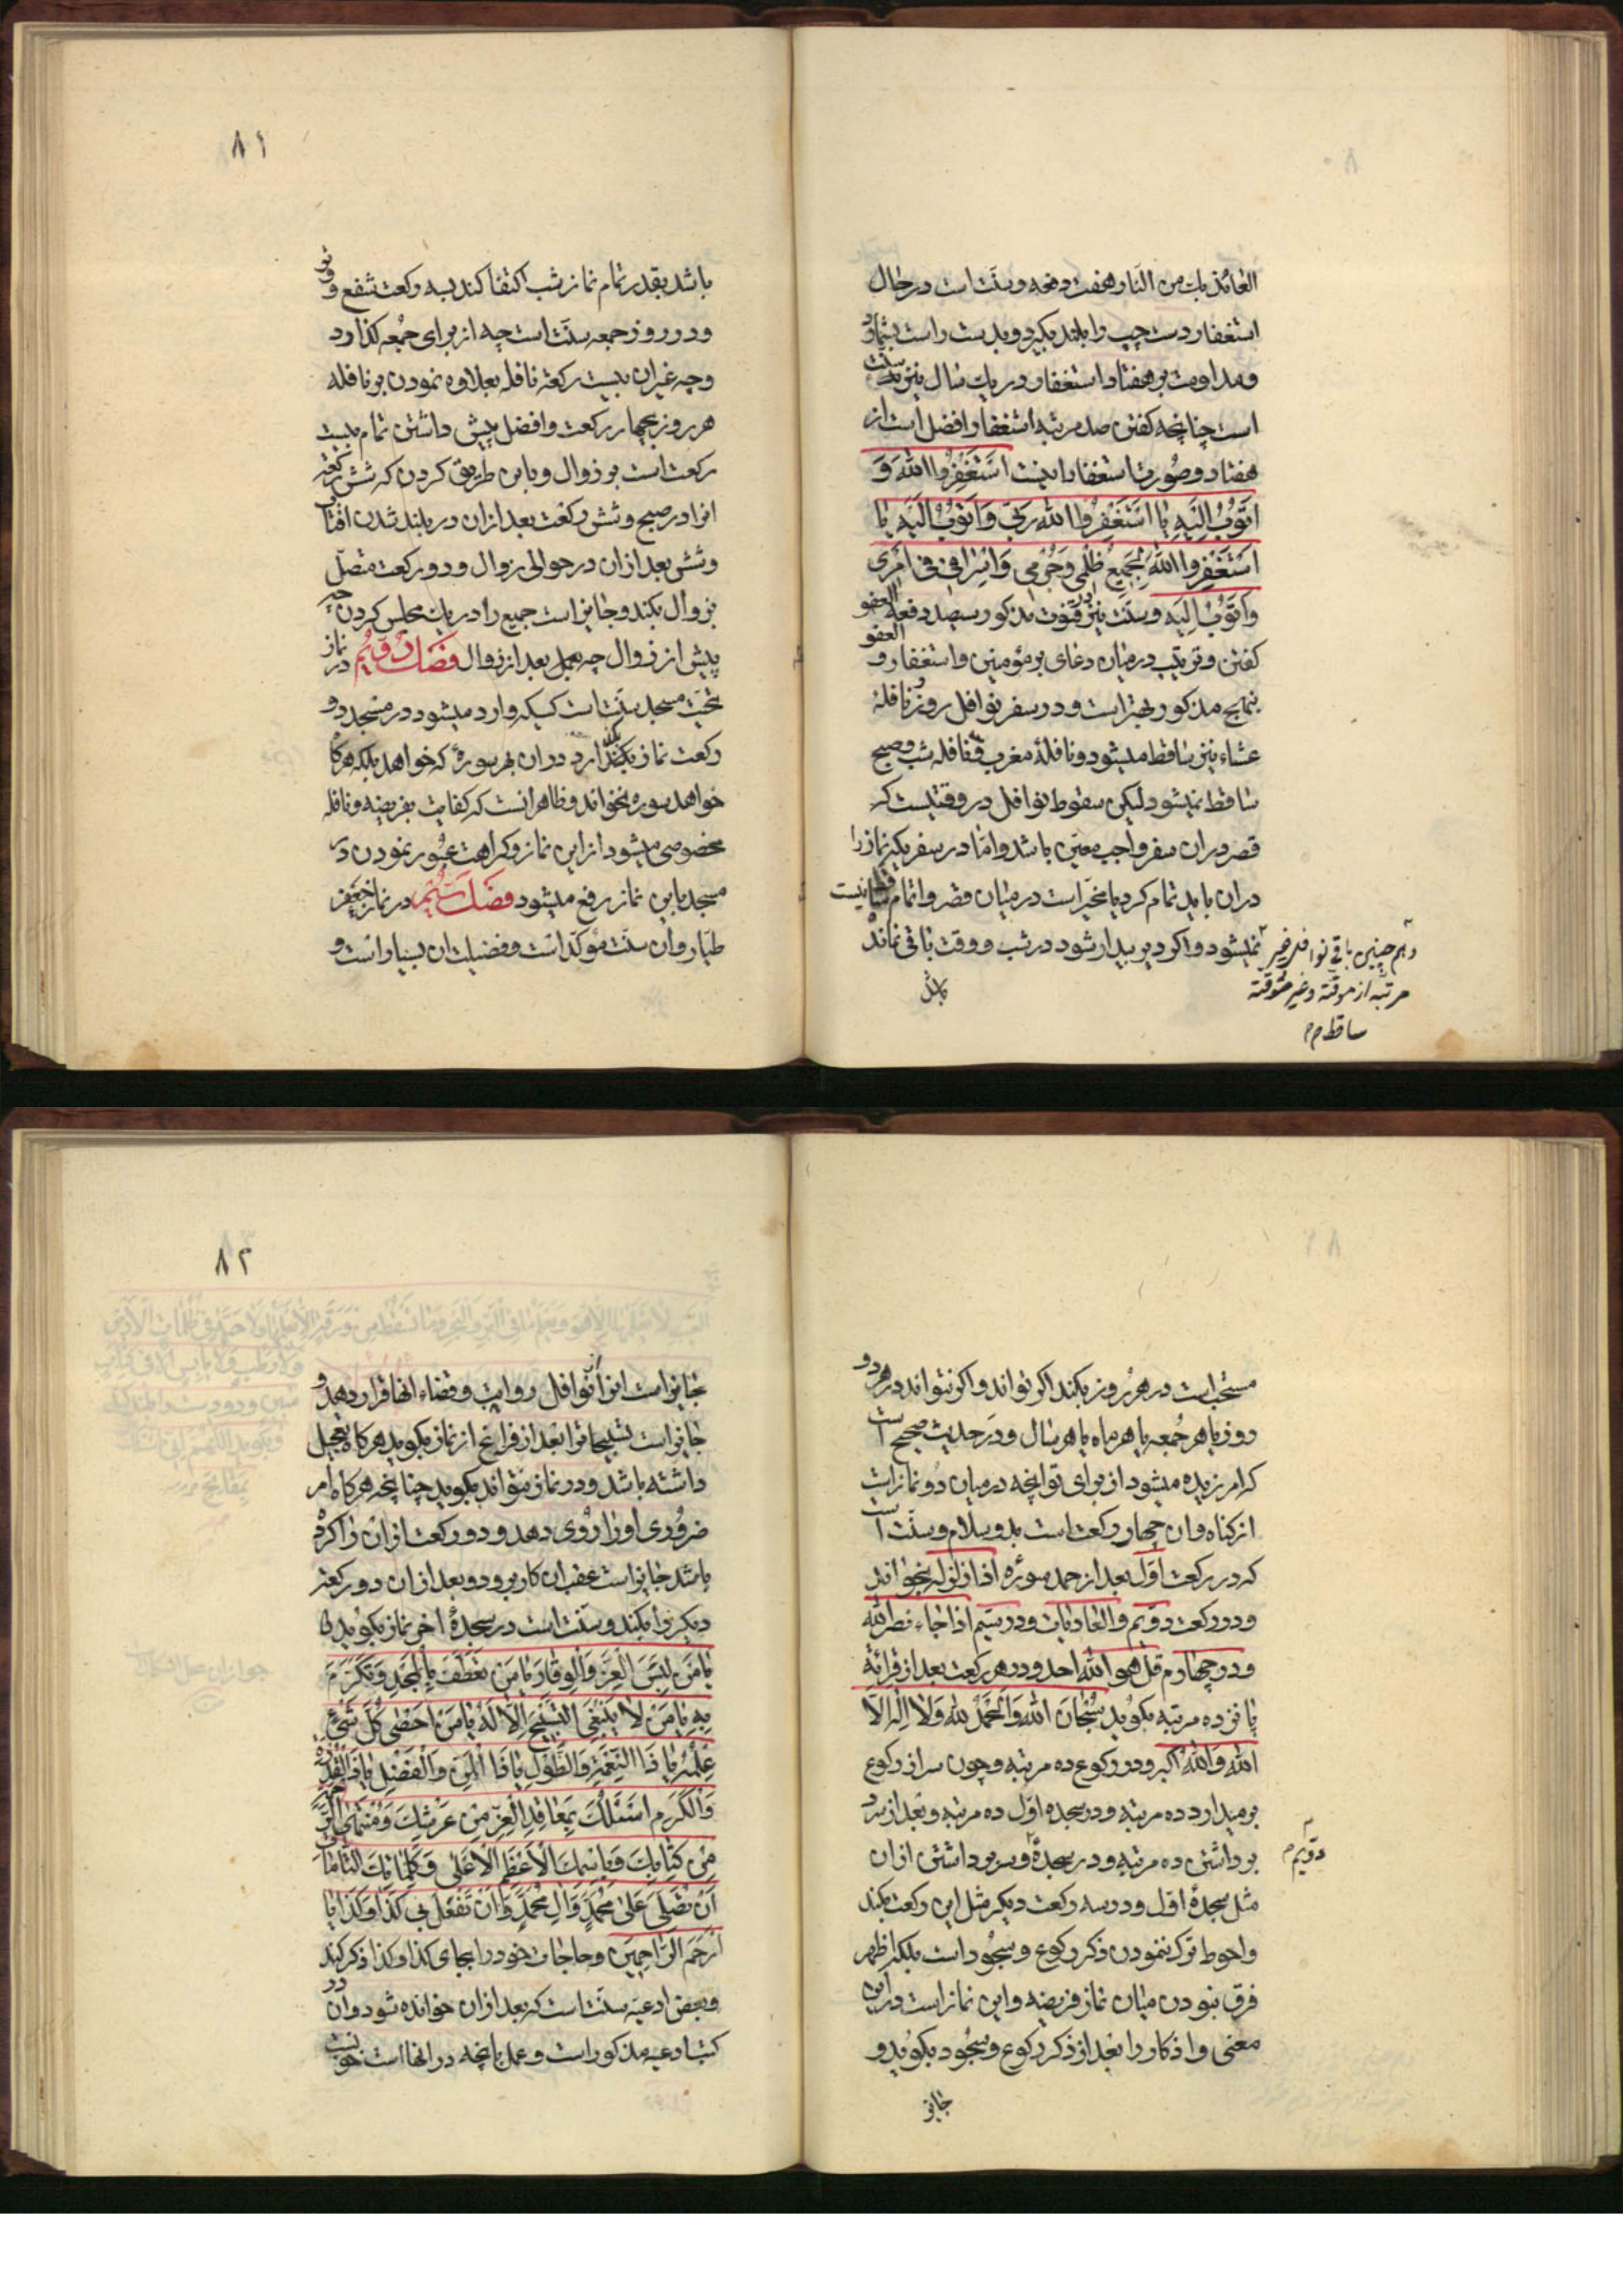 العائذ بك من النار هفت دفعه و سنت است در حال
استغفار دست چپ را بلند بگیرد و بدست راست بشمارد
و مداومت بر هفتاد استغفار در یك سال نیز سنت
است چنانچه کفتن صد مرتبه استغفار افضل است از
هفتاد و صورت استغفار اینست اَسْتَغْفِرُوا اللهَ وَ
اَتُوبُ اِلَیْهِ یا اَسْتَغْفِرُوا اللهَ رَبّی وَ اَتُوبُ اِلَیْهِ یا
اَسْتَغْفِرُوا اللهَ لِجَمیعِ ظُلْمی وَ جُرْمی وَ اِسْرافی فی اَمْری
وَ اَتُوبُ اِلَیْهِ و سنت نیز در قنوت مذکور سیصد دفعه العفو
العفو
کفتن و ترتیب درمیان دعای بر مؤمنین و استغفار و
بنهج مذکور بهتر است و در سفر نوافل روز و نافلهٔ
عشاء نیز ساقط میشود و نافلهٔ مغرب و نافله شب و صبح
ساقط نمیشود لیکن سقوط نوافل در وقتیست که
قصر در ان سفر واجب معین باشد و امّا در سفریکه نماز را
در ان باید تمام کرد یا مخیّر است درمیان قصر و اتمام ساقط نیست
نمیشود و اکر دیر بیدار شود در شب و وقت باقی نماند
و هم چنین باقی نوافل غیر
مرتبه از موقته و غیر موقته
ساقط م م
باشد
۸۱
باشد بقدر تمام نماز شب اکتفا کند بسه رکعت شفع و وتر
و در روز جمعه سنت است چه از برای جمعه کذارد
و چه غیر ان بیست رکعت نافله بعلاوه نمودن بر نافله
هر روز بچهار رکعت و افضل پیش داشتن تمام بیست
رکعت است بر زوال و باین طریق کردن که شش رکعت
انرا در صبح و شش رکعت بعد از ان در بلند شدن افتاب
و شش بعد از ان در حوالی زوال و دو رکعت متصل
بزوال بکند و جایز است جمیع را در یك مجلس کردن چه
پیش از زوال چه بعد از زوال فصل دویُم در نماز
تحیّت مسجد سنت است کسیکه وارد میشود در مسجد دو
رکعت نماز بکذارد در ان بهر سورهٔ که خواهد بلکه هرگاه
خواهد سوره نخواند و ظاهر انست که کفایت بفریضه و نافله
مخصوصی میشود از این نماز و کراهت عبور نمودن در
مسجد باین نماز رفع میشود فصل سیُّم در نماز جعفر
طیّار و ان سنت مؤکّد است و فضیلت ان بسیار است و
مستحب است در هر روز بکند اکر تواند و اکر نتواند در هر دو
روز یا هر جمعه یا هر ماه یا هر سال و در حدیث صحیح است
که امرزیده میشود از برای تو انچه درمیان دو نماز است
از کناه و ان چهار رکعت است بدو سلام و سنت است
که در رکعت اوّل بعد از حمد سورهٔ اذا زلزله بخواند
و در رکعت دویّم و العادیات و در سیّم اذا جاء نصر الله
و در چهارم قل هو الله احد و در هر رکعت بعد از قرائة
پانزده مرتبه بکوید سُبْحانَ اللهِ وَ الْحَمْدُ لِلّهِ وَ لا اِلهَ اِلاَّ
اللهُ وَ اللهُ اَکْبَر و در رکوع ده مرتبه و چون سر از رکوع
بر میدارد ده مرتبه و در سجده اوّل ده مرتبه و بعد از سر
برداشتن ده مرتبه و در سجدهٔ و سر برداشتن از ان
دویّم م
مثل سجدهٔ اوّل و در سه رکعت دیکر مثل این رکعت بکند
و احوط ترك ننمودن ذکر رکوع و سجود است بلکه اظهر
فرق نبودن میان نماز فریضه و این نماز است در این
معنی و اذکار را بعد از ذکر رکوع و سجود بکوید و
جایز
۸۲
جایز است انرا از نوافل رواتب و قضاء انها قرار دهد و
جایز است تسبیحات را بعد از فراغ از نماز بکوید هرکاه تعجیل
داشته باشد و در نماز نتواند بکوید چنانچه هرکاه امر
ضروری او را روی دهد و دو رکعت از ان را کرده
باشد جایز است عقب ان کار برود و بعد از ان دو رکعت
دیکر را بکند و سنت است در سجدهٔ اخر نماز بکوید یا
یا مَنْ لَبِسَ الْعِزَّ وَ الْوِقارَ یا مَنْ تَعَطَّفَ بِالْمَجْدِ وَ تَکَرَّمَ
بِهِ یا مَنْ لا یَنْبَغِی التَّسْبیحُ اِلاّ لَهُ یا مَنْ اَحْصی کُلَّ شَیْءٍ
عِلْمُهُ یا ذَا النِّعْمَةِ وَ الطَّوْلِ یا ذَا الْمَنِّ وَ الْفَضْلِ یا ذَا الْقُدْرَةِ
وَ الْکَرَمِ اَسْئَلُكَ بِمَعاقِدِ الْعِزِّ مِنْ عَرْشِكَ وَ مُنْتَهَی الرَّحْمَةِ
مِنْ کِتابِكَ وَ بِاسْمِكَ الْاَعْظَمِ الْاَعْلی وَ کَلِماتِكَ التّامّاتِ
اَنْ تُصَلِّیَ عَلی مُحَمَّدٍ وَ الِ مُحَمَّدٍ وَ اَنْ تَفْعَلَ بی کَذا وَ کَذا یا
اَرْحَمَ الرّاحِمینَ و حاجات خود را بجای کذا و کذا ذکر کند
و بعض ادعیه سنت است که بعد از ان خوانده شود و ان در
کتب ادعیه مذکور است و عمل بانچه در انها است خوبست